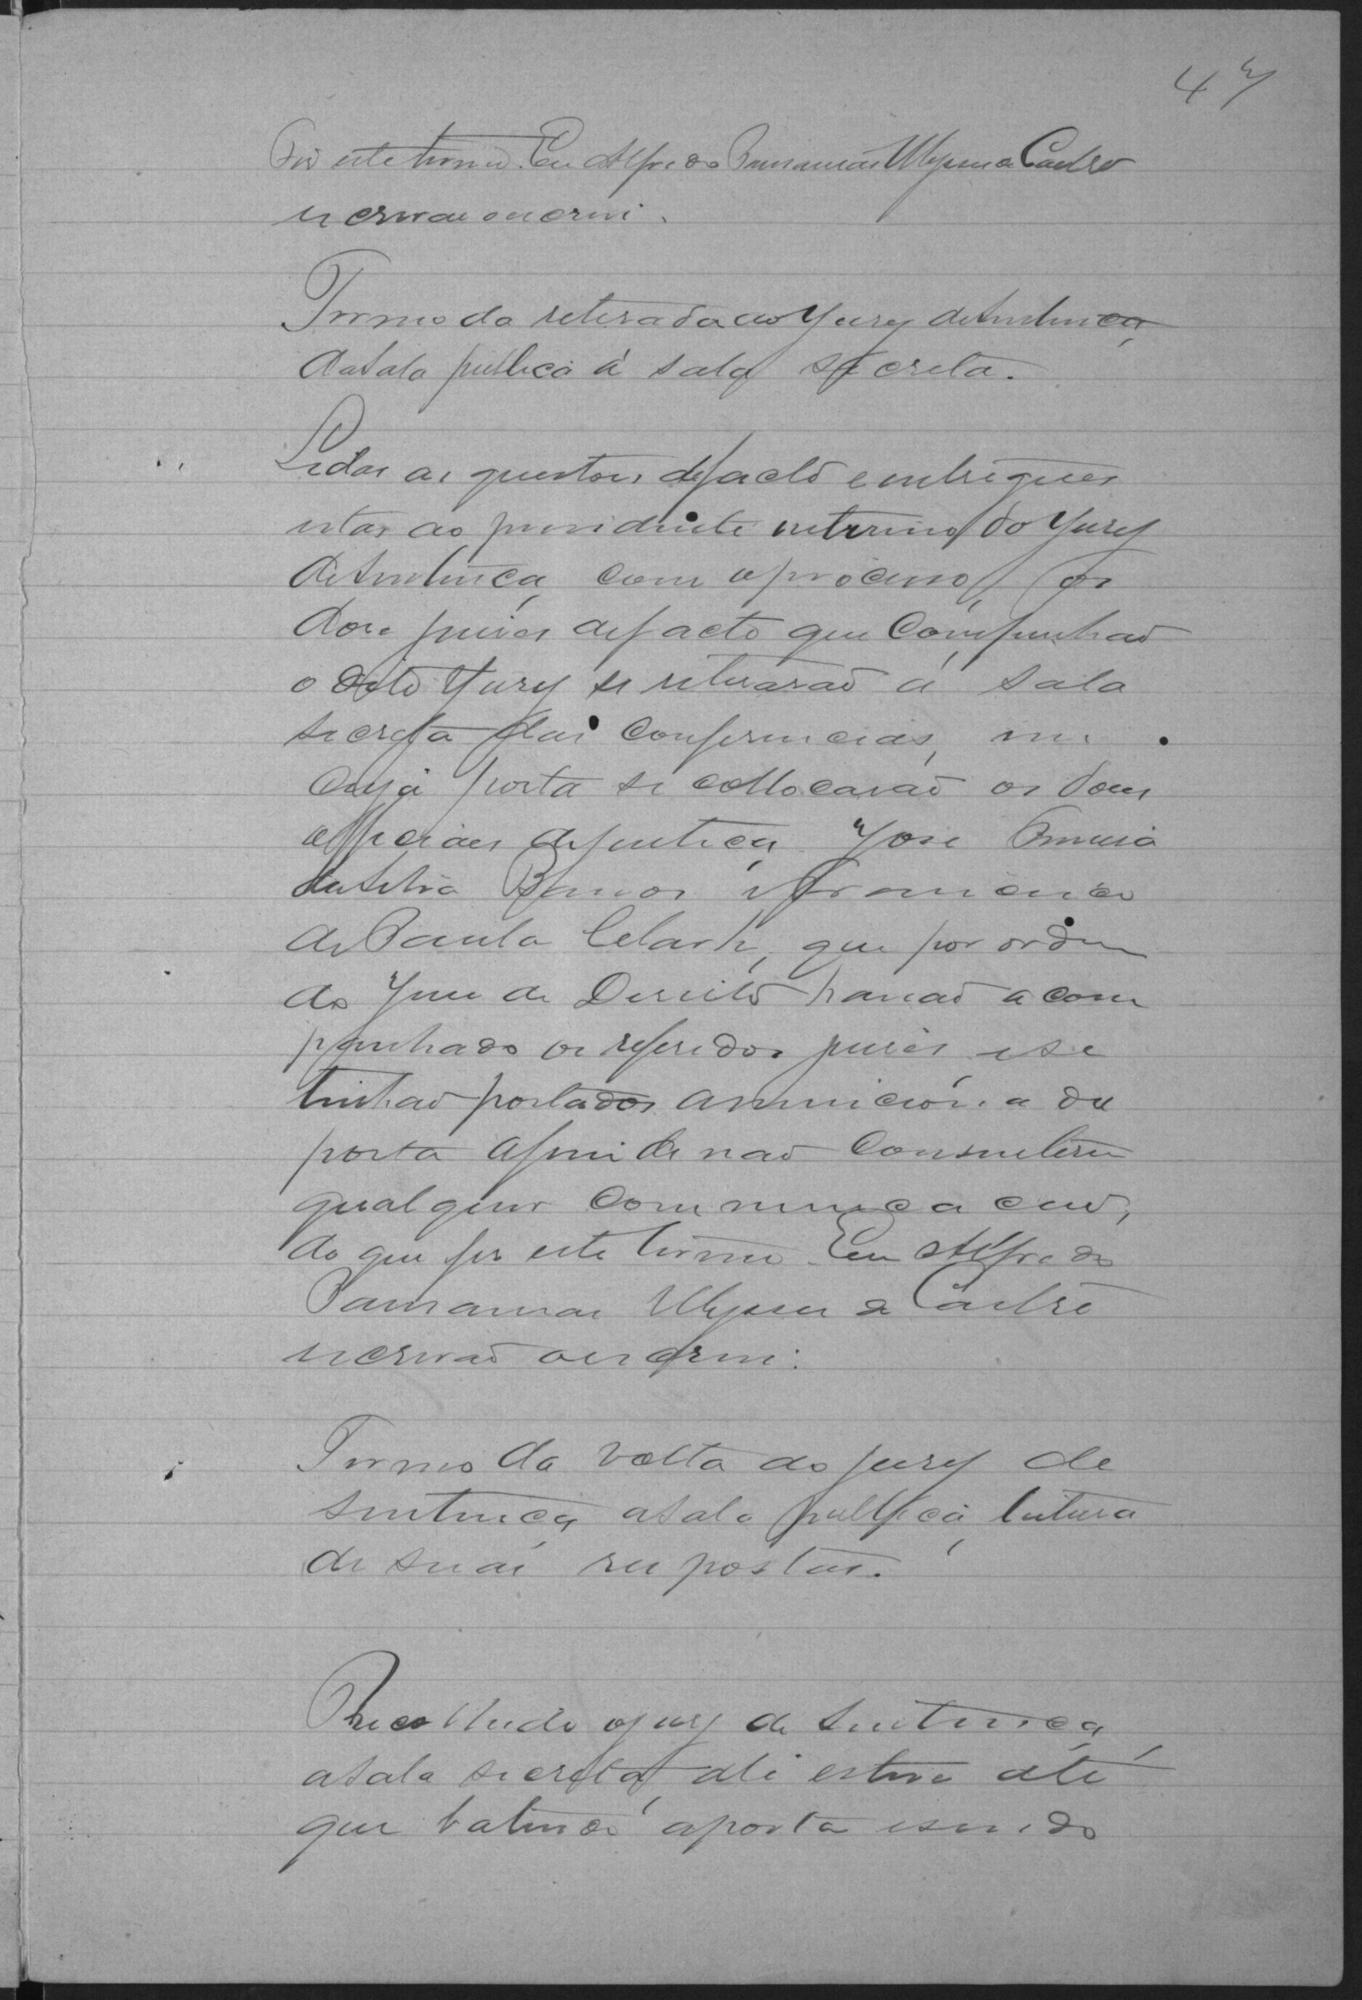 47
Foi este termo. Eu Alfredo Ulysses a Castro
escrivão escrevi.
Termo da retirada do Jury de Sentença
da sala publica á sala secreta.
Lidas as questões de facto e entregues
estas ao presidente interino do Jury
de Sentença com o processo, os
doze juizes de facto que compunhão
o dito Jury se retirarão á sala
secreta das conferencias, em
cuja porta se collocarão os dous
officiaes de justiça José
da Silva Barros e Francisco
de Paula Clark, que por ordem
do Juiz de Direito havião acom
panhado os referidos juizes e se
tinhão postados a da
porta afim de não consentirem
qualquer communicação,
do que fiz este termo. Eu Alfredo
Ulysses a Castro
escrivão escrevi.
Termo da volta do jury de
sentença a sala publica, leitura
de suas respostas.
Recolhido o jury de sentença
a sala secreta, ali esteve até
que bateu a porta e sendo